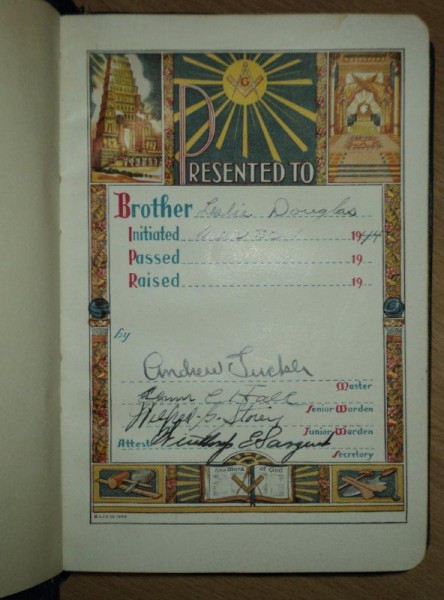 G
PRESENTED TO
Brother Leslie Douglas
Initiated 1944
Passed 19
Raised 19
by
Andrew Tucker
Master
E Hall
Senior Warden
Wilfred G. Storey
Junior Warden
Attest E Sargent
Secretary
Word of God